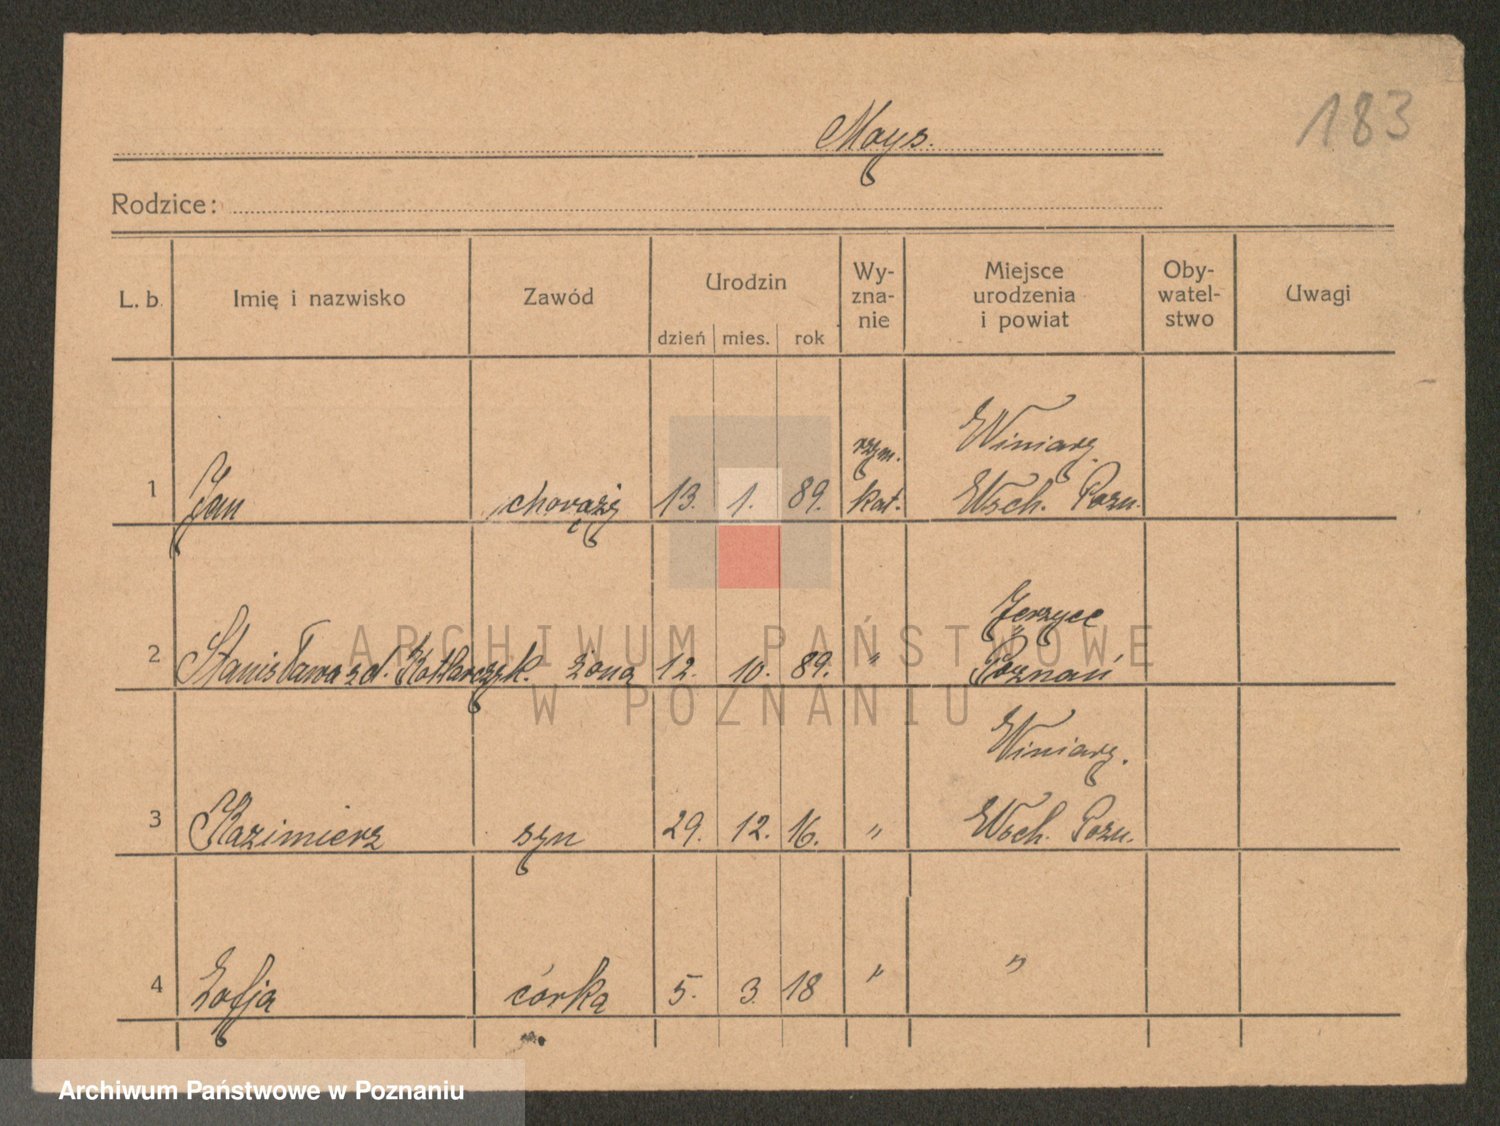 183
Mays.
Rodzice:
L. b. Imię i nazwisko Zawód Urodzin Wy-zna-nie Miejsce urodzenia i powiat Oby-watel-stwo Uwagi
dzień mies. rok
1 Jan chorąży 13. 1. 89. rzym. kat. Winiary. Wsch. Pozn.
2 Stanisława zd. Kotlarczyk. żona 12. 10. 89. " Jerzyce Poznań
3 Kazimierz syn 29. 12. 16. " Winiary. Wsch. Pozn.
4 Zofja córka 5. 3. 18 " "
ARCHIWUM PAŃSTWOWE
W POZNANIU
Archiwum Państwowe w Poznaniu